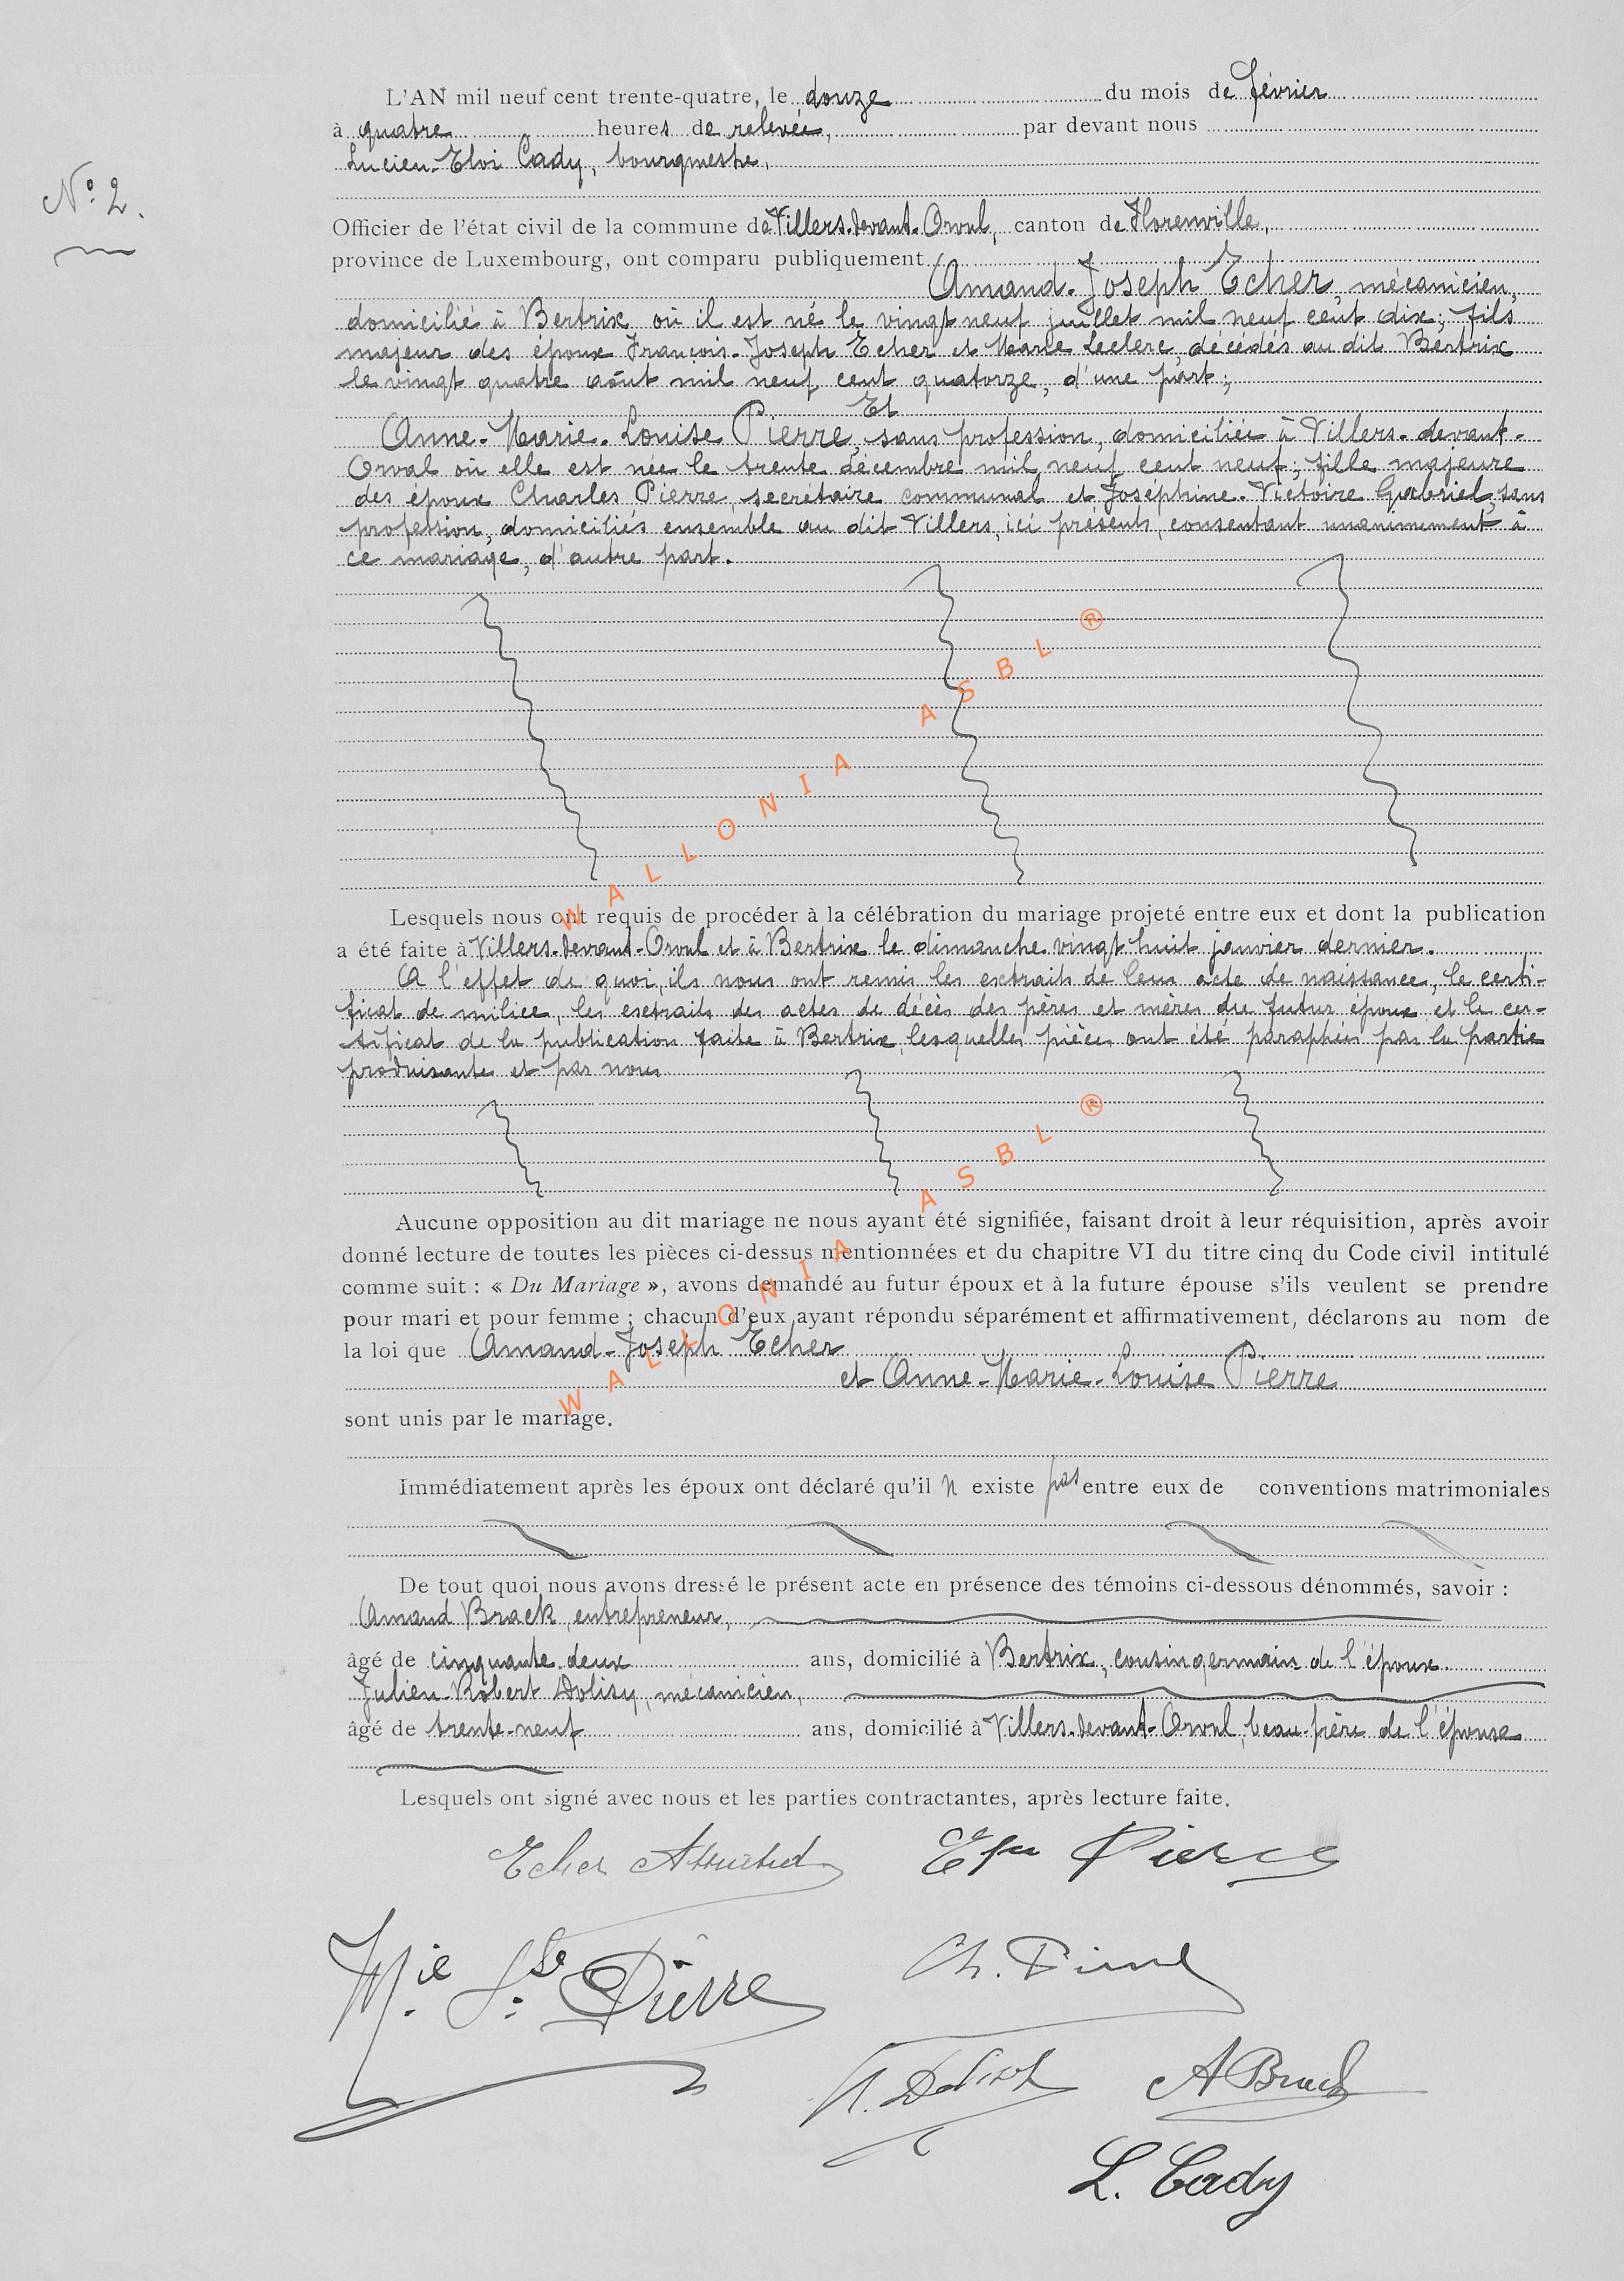 L'AN mil neuf cent trente-quatre, le douze du mois de février
à quatre heures de relevée, par devant nous
Lucien-Eloi Cady, bourgmestre,
N° 2.
Officier de l'état civil de la commune de Villers-devant-Orval, canton de Florenville,
province de Luxembourg, ont comparu publiquement
Amand-Joseph Echer, mécanicien,
domicilié à Bertrix, où il est né le vingt neuf juillet mil neuf cent dix; fils
majeur des époux François-Joseph Echer et Marie Leclerc, décédés au dit Bertrix
le vingt quatre août mil neuf cent quatorze, d'une part;
Et
Anne-Marie-Louise Pierre, sans profession, domiciliée à Villers-devant-
Orval où elle est née le trente décembre mil neuf cent neuf; fille majeure
des époux Charles Pierre, secrétaire communal et Joséphine-Victoire Gabriel, sans
profession, domiciliés ensemble au dit Villers, ici présents, consentant unanimement à
ce mariage, d'autre part.
WALLONIA ASBL ®
Lesquels nous ont requis de procéder à la célébration du mariage projeté entre eux et dont la publication
a été faite à Villers-devant-Orval et à Bertrix le dimanche vingt huit janvier dernier.
A l'effet de quoi, ils nous ont remis les extraits de leur acte de naissance, le certi-
ficat de milice, les extraits des actes de décès des pères et mères du futur époux et le cer-
tificat de la publication faite à Bertrix, lesquelles pièces ont été paraphées par la partie
produisante et par nous
WALLONIA ASBL ®
Aucune opposition au dit mariage ne nous ayant été signifiée, faisant droit à leur réquisition, après avoir
donné lecture de toutes les pièces ci-dessus mentionnées et du chapitre VI du titre cinq du Code civil intitulé
comme suit : « Du Mariage », avons demandé au futur époux et à la future épouse s'ils veulent se prendre
pour mari et pour femme ; chacun d'eux ayant répondu séparément et affirmativement, déclarons au nom de
la loi que Amand-Joseph Echer
et Anne-Marie-Louise Pierre
sont unis par le mariage.
Immédiatement après les époux ont déclaré qu'il n existe pas entre eux de conventions matrimoniales
De tout quoi nous avons dressé le présent acte en présence des témoins ci-dessous dénommés, savoir :
Amand Brack, entrepreneur,
âgé de cinquante deux ans, domicilié à Bertrix, cousin germain de l'époux
Julien-Robert Dolisy, mécanicien,
âgé de trente-neuf ans, domicilié à Villers-devant-Orval, beau-frère de l'épouse
Lesquels ont signé avec nous et les parties contractantes, après lecture faite.
Echer Amand Pierre
Mie Lse Pierre Ch. Pierre
A Brack
L. Cady